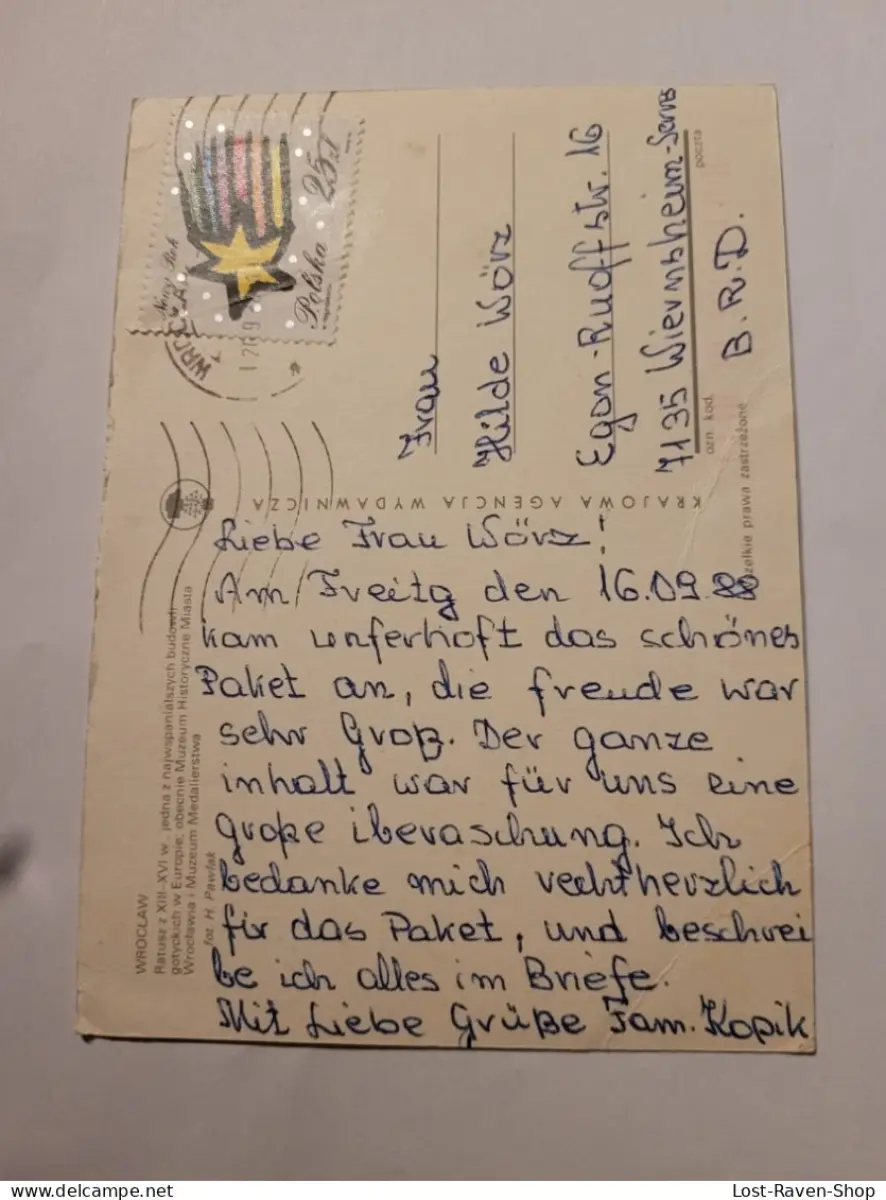 Liebe Frau Wörz!
Am Freitg den 16.09.88
kam unferhoft das schönes
Paket an, die freude war
sehr Groß. Der ganze
inhalt war für uns eine
große iberaschung. Ich
bedanke mich rechtherzlich
für das Paket, und beschrei
be ich alles im Briefe.
Mit Liebe Grüße Fam. Kopik
Frau
Hilde Wörz
Egon-Ruoffstr. 16
7135 Wiernsheim-Serres
B.R.D.
poczta
ozn. kod.
Nowy Rok
Polska 25 zł
WROCŁAW
KRAJOWA AGENCJA WYDAWNICZA
prawa zastrzeżone
WROCŁAW
Ratusz z XIII-XVI w., jedna z najwspanialszych budowli
gotyckich w Europie, obecnie Muzeum Historyczne Miasta
Wrocławia i Muzeum Medalierstwa
fot. H. Pawlak
Lost-Raven-Shop
delcampe.net